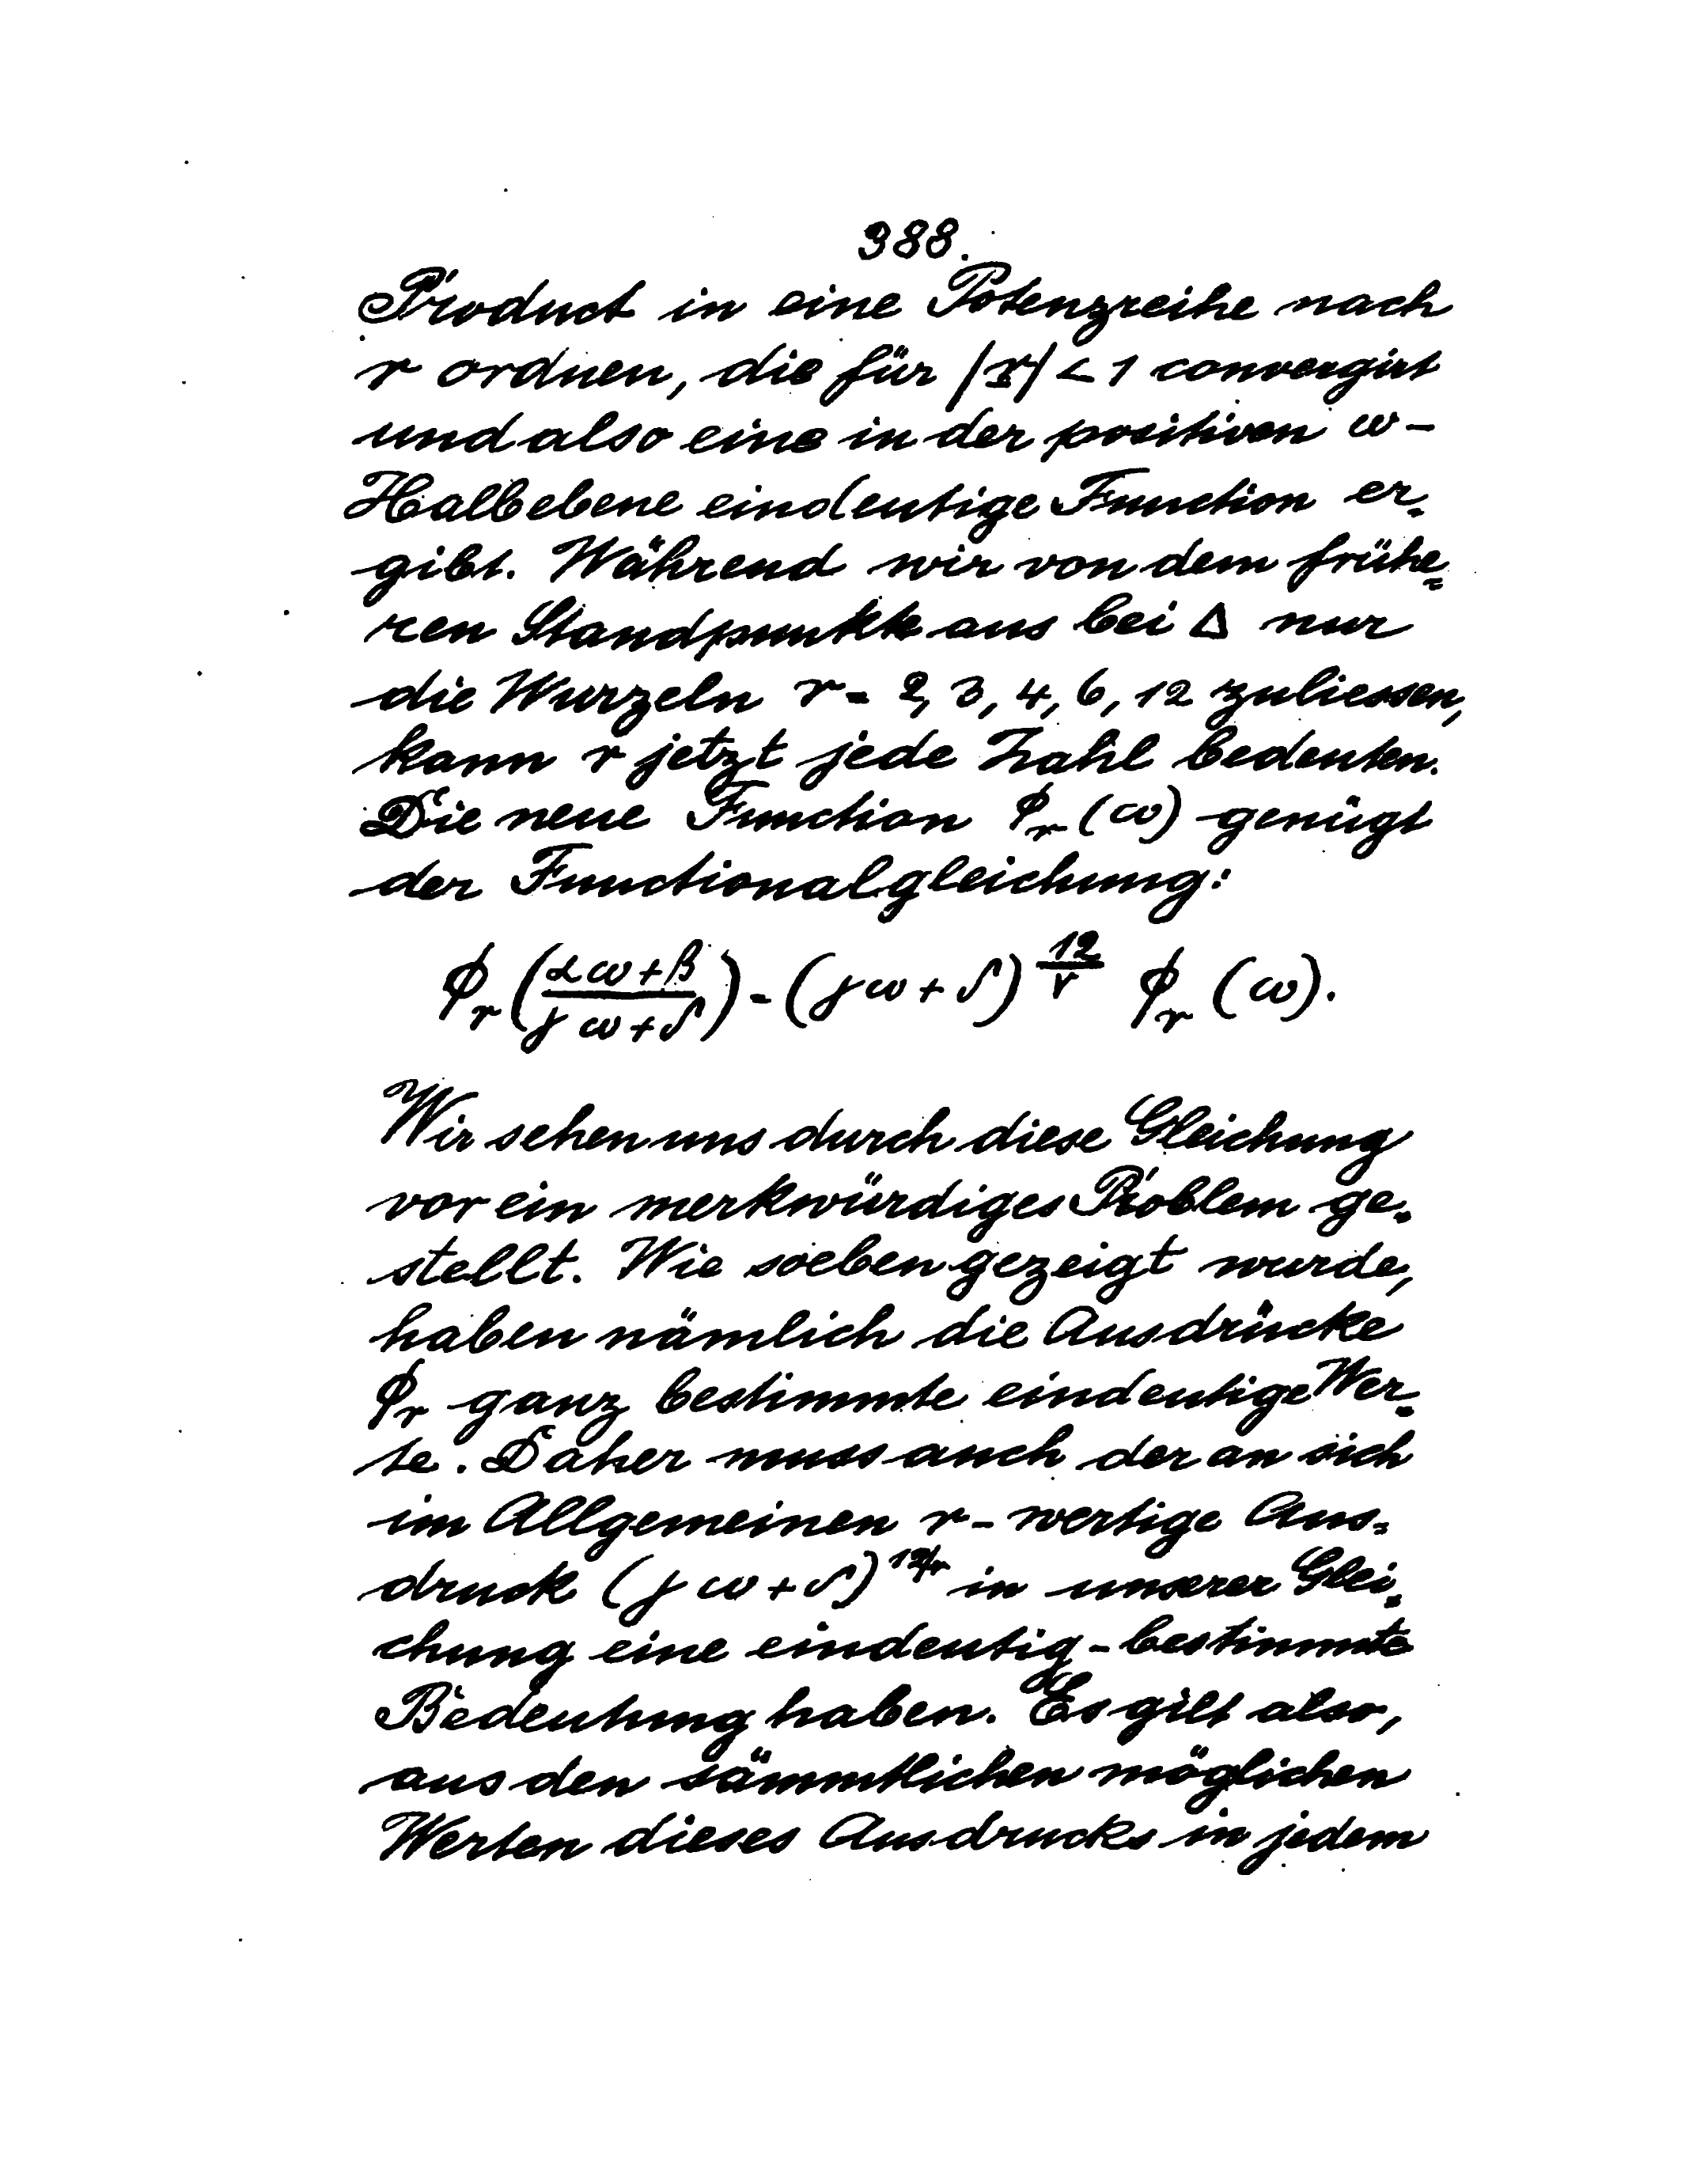 388.
Product in eine Potenzreihe nach
r ordnen, die für |r| < 1 convergirt
und also eine in der positiven ω-
Halbebene eindeutige Function er-
gibt. Während wir von dem frühe-
ren Standpunkte aus bei Δ nur
die Wurzeln r = 2, 3, 4, 6, 12 zuliessen,
kann r jetzt jede Zahl bedeuten.
Die neue Function ϕ_r (ω) genügt
der Functionalgleichung:
ϕ_r ((αω+β)/(γω+δ)) = (γω+δ)^(12/r) ϕ_r (ω).
Wir sehen uns durch diese Gleichung
vor ein merkwürdiges Problem ge-
stellt. Wie soeben gezeigt wurde,
haben nämlich die Ausdrücke
ϕ_r ganz bestimmte eindeutige Wer-
te. Daher muss auch der an sich
im Allgemeinen r-wertige Aus-
druck (γω+δ)^(12/r) in unserer Glei-
chung eine eindeutig-bestimmte
Bedeutung haben. Es gilt also,
aus den sämmtlichen möglichen
Werten dieses Ausdrucks in jedem